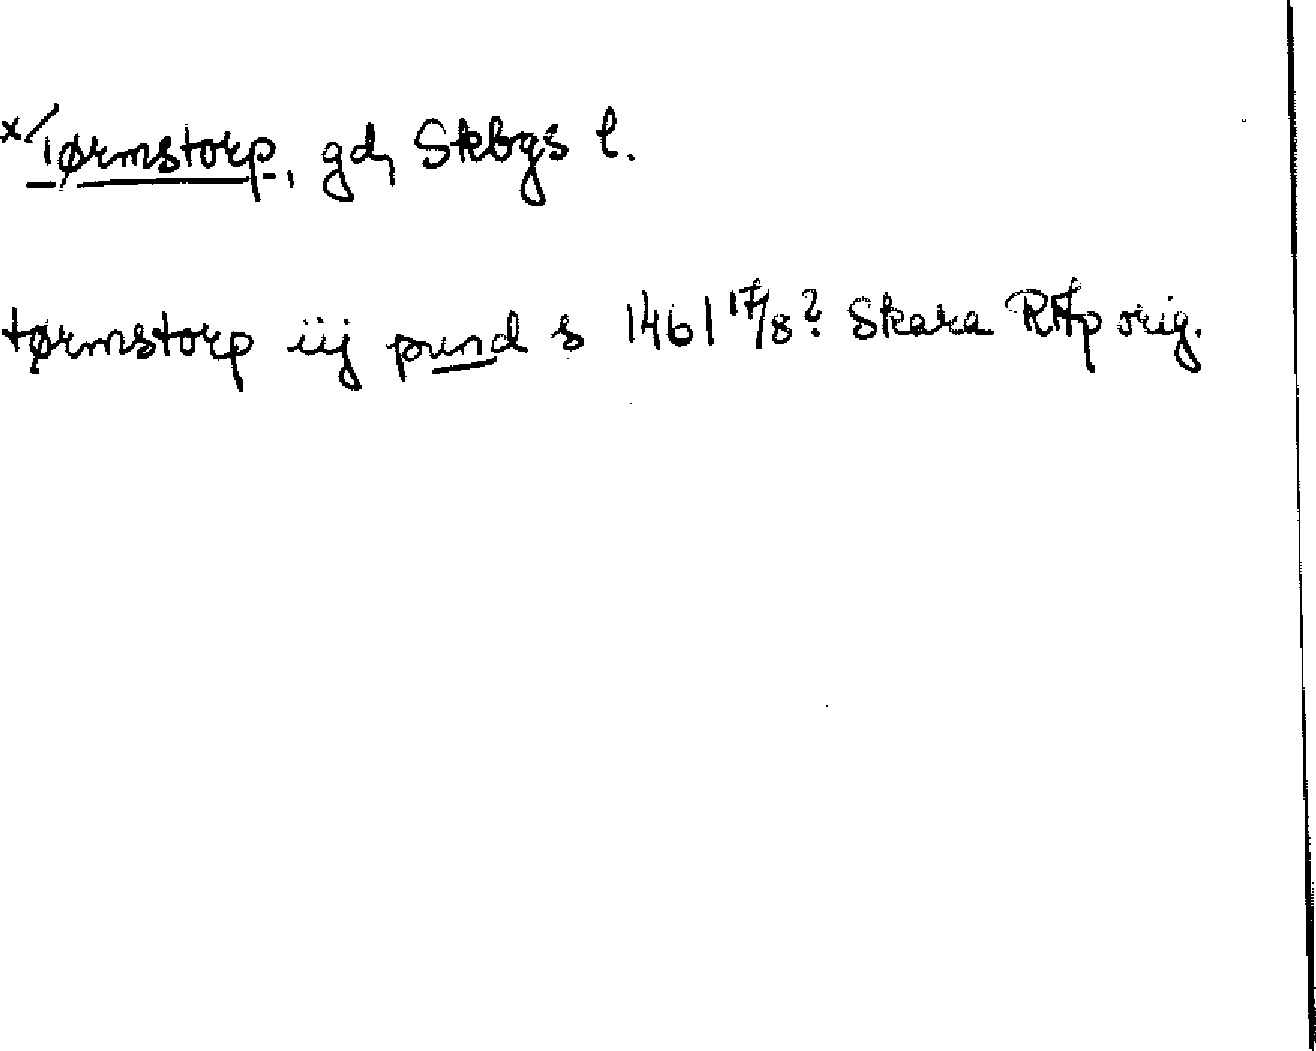 x/Tørmstorp, gd, Skbgs l.
tørmstorp iij pund s 1461 17/8? Skara RAp orig.